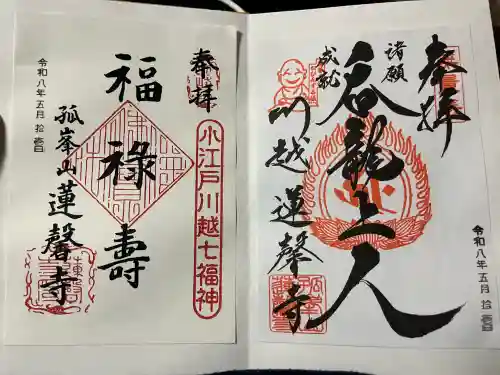 奉拝
諸願
成就
呑龍上人
川越蓮馨寺
令和八年五月拾壱日
奉拝
小江戸川越七福神
福祿寿
孤峯山蓮馨寺
令和八年五月拾壱日